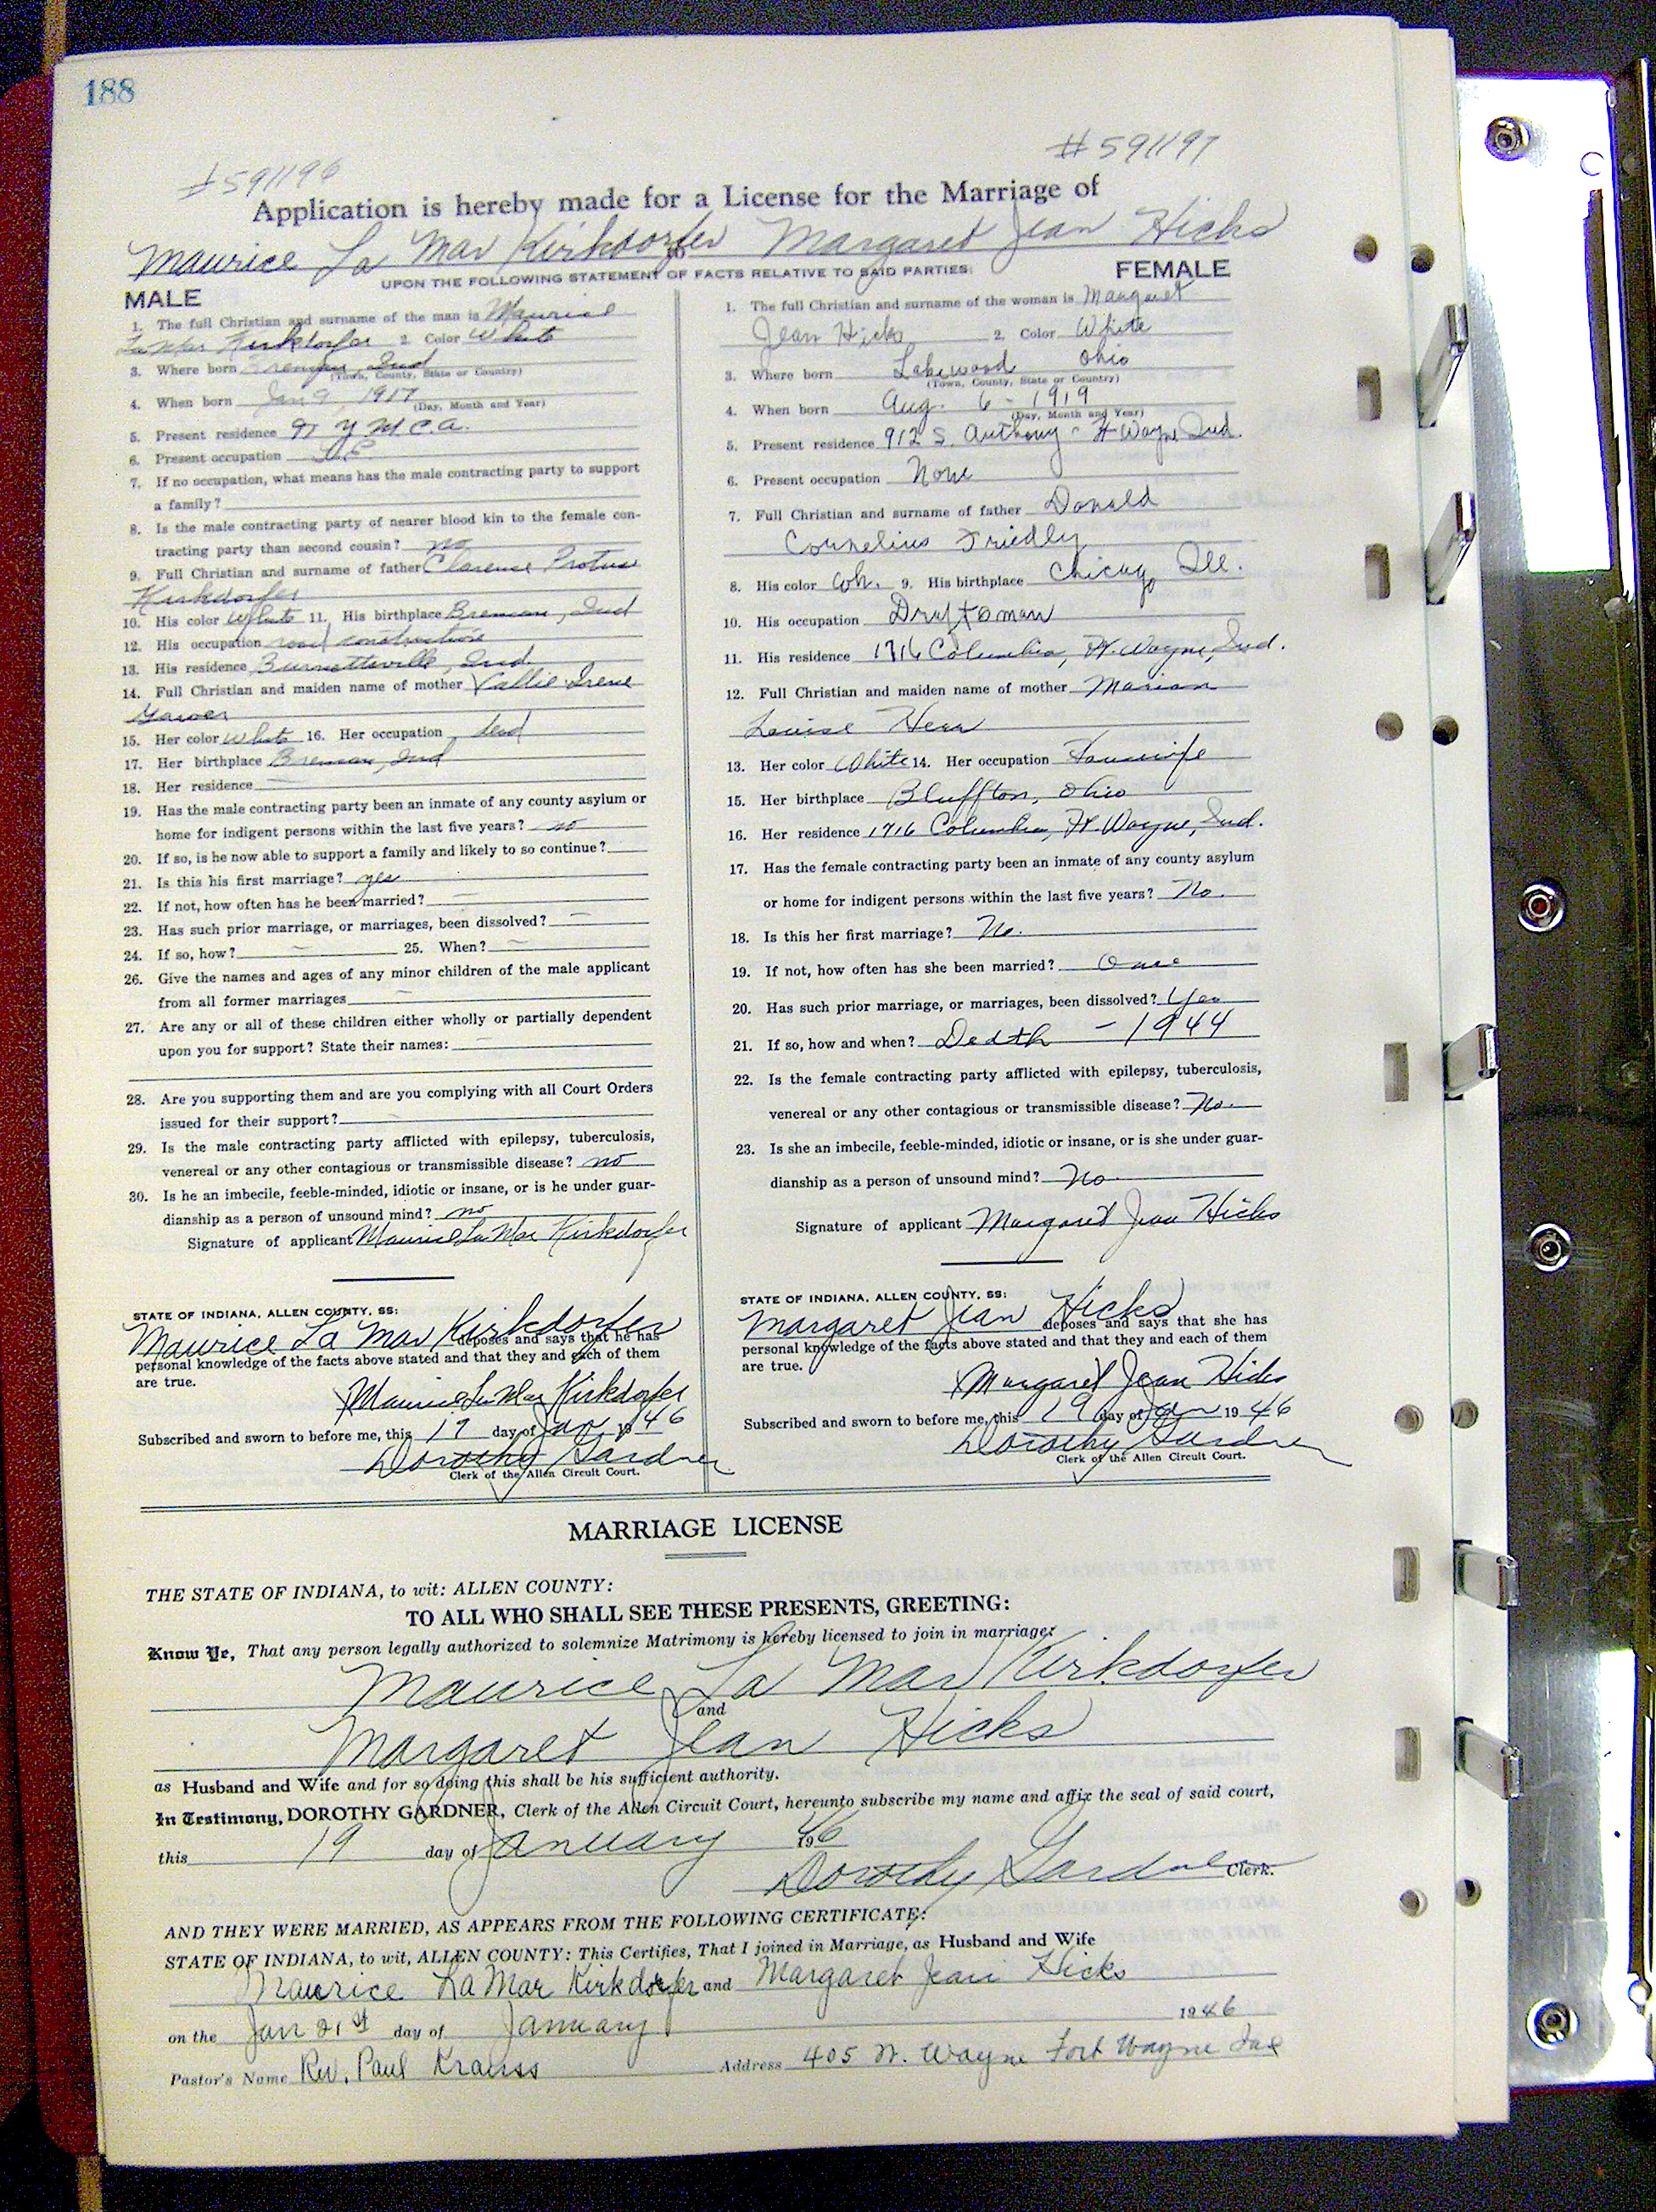 188
#591196
#591197
Application is hereby made for a License for the Marriage of
Maurice La Mar Kirkdorfer to Margaret Jean Hicks
UPON THE FOLLOWING STATEMENT OF FACTS RELATIVE TO SAID PARTIES:
MALE
1. The full Christian and surname of the man is Maurice
La Mar Kirkdorfer 2. Color White
3. Where born Bremen, Ind
(Town, County, State or Country)
4. When born Jan 9, 1917
(Day, Month and Year)
5. Present residence Y M C. A.
6. Present occupation
7. If no occupation, what means has the male contracting party to support
a family?
8. Is the male contracting party of nearer blood kin to the female con-
tracting party than second cousin? no
9. Full Christian and surname of father Clarence
Kirkdorfer
10. His color White 11. His birthplace Bremen, Ind
12. His occupation road construction
13. His residence Burnettsville, Ind.
14. Full Christian and maiden name of mother Vallie Irene
15. Her color White 16. Her occupation dead
17. Her birthplace Bremen, Ind
18. Her residence
19. Has the male contracting party been an inmate of any county asylum or
home for indigent persons within the last five years? no
20. If so, is he now able to support a family and likely to so continue?
21. Is this his first marriage? yes
22. If not, how often has he been married? —
23. Has such prior marriage, or marriages, been dissolved? —
24. If so, how? — 25. When? —
26. Give the names and ages of any minor children of the male applicant
from all former marriages —
27. Are any or all of these children either wholly or partially dependent
upon you for support? State their names: —
28. Are you supporting them and are you complying with all Court Orders
issued for their support? —
29. Is the male contracting party afflicted with epilepsy, tuberculosis,
venereal or any other contagious or transmissible disease? no
30. Is he an imbecile, feeble-minded, idiotic or insane, or is he under guar-
dianship as a person of unsound mind? no
Signature of applicant Maurice La Mar Kirkdorfer
STATE OF INDIANA, ALLEN COUNTY, SS:
Maurice La Mar Kirkdorfer deposes and says that he has
personal knowledge of the facts above stated and that they and each of them
are true.
X Maurice La Mar Kirkdorfer
Subscribed and sworn to before me, this 19 day of Jan 1946
Dorothy Gardner
Clerk of the Allen Circuit Court.
FEMALE
1. The full Christian and surname of the woman is Margaret
Jean Hicks 2. Color White
3. Where born Lakewood Ohio
(Town, County, State or Country)
4. When born Aug. 6 - 1919
(Day, Month and Year)
5. Present residence 912 S. Anthony - Ft Wayne, Ind.
6. Present occupation None
7. Full Christian and surname of father Donald
Cornelius Friedly
8. His color Wh. 9. His birthplace Chicago, Ill.
10. His occupation Draftsman
11. His residence 1716 Columbia, Ft. Wayne, Ind.
12. Full Christian and maiden name of mother Marian
Louise Herr
13. Her color White 14. Her occupation Housewife
15. Her birthplace Bluffton, Ohio
16. Her residence 1716 Columbia, Ft. Wayne, Ind.
17. Has the female contracting party been an inmate of any county asylum
or home for indigent persons within the last five years? No.
18. Is this her first marriage? No.
19. If not, how often has she been married? Once
20. Has such prior marriage, or marriages, been dissolved? Yes
21. If so, how and when? Death - 1944
22. Is the female contracting party afflicted with epilepsy, tuberculosis,
venereal or any other contagious or transmissible disease? No.
23. Is she an imbecile, feeble-minded, idiotic or insane, or is she under guar-
dianship as a person of unsound mind? No
Signature of applicant Margaret Jean Hicks
STATE OF INDIANA, ALLEN COUNTY, SS:
Margaret Jean Hicks deposes and says that she has
personal knowledge of the facts above stated and that they and each of them
are true.
X Margaret Jean Hicks
Subscribed and sworn to before me, this 19 day of Jan 1946
Dorothy Gardner
Clerk of the Allen Circuit Court.
MARRIAGE LICENSE
THE STATE OF INDIANA, to wit: ALLEN COUNTY:
TO ALL WHO SHALL SEE THESE PRESENTS, GREETING:
Know Ye, That any person legally authorized to solemnize Matrimony is hereby licensed to join in marriage:
Maurice La Mar Kirkdorfer
and
Margaret Jean Hicks
as Husband and Wife and for so doing this shall be his sufficient authority.
In Testimony, DOROTHY GARDNER, Clerk of the Allen Circuit Court, hereunto subscribe my name and affix the seal of said court,
this 19 day of January 1946
Dorothy Gardner Clerk.
AND THEY WERE MARRIED, AS APPEARS FROM THE FOLLOWING CERTIFICATE:
STATE OF INDIANA, to wit, ALLEN COUNTY: This Certifies, That I joined in Marriage, as Husband and Wife
Maurice LaMar Kirkdorfer and Margaret Jean Hicks
on the Jan 21st day of January 1946
Pastor's Name Rev. Paul Krauss Address 405 W. Wayne Fort Wayne Ind